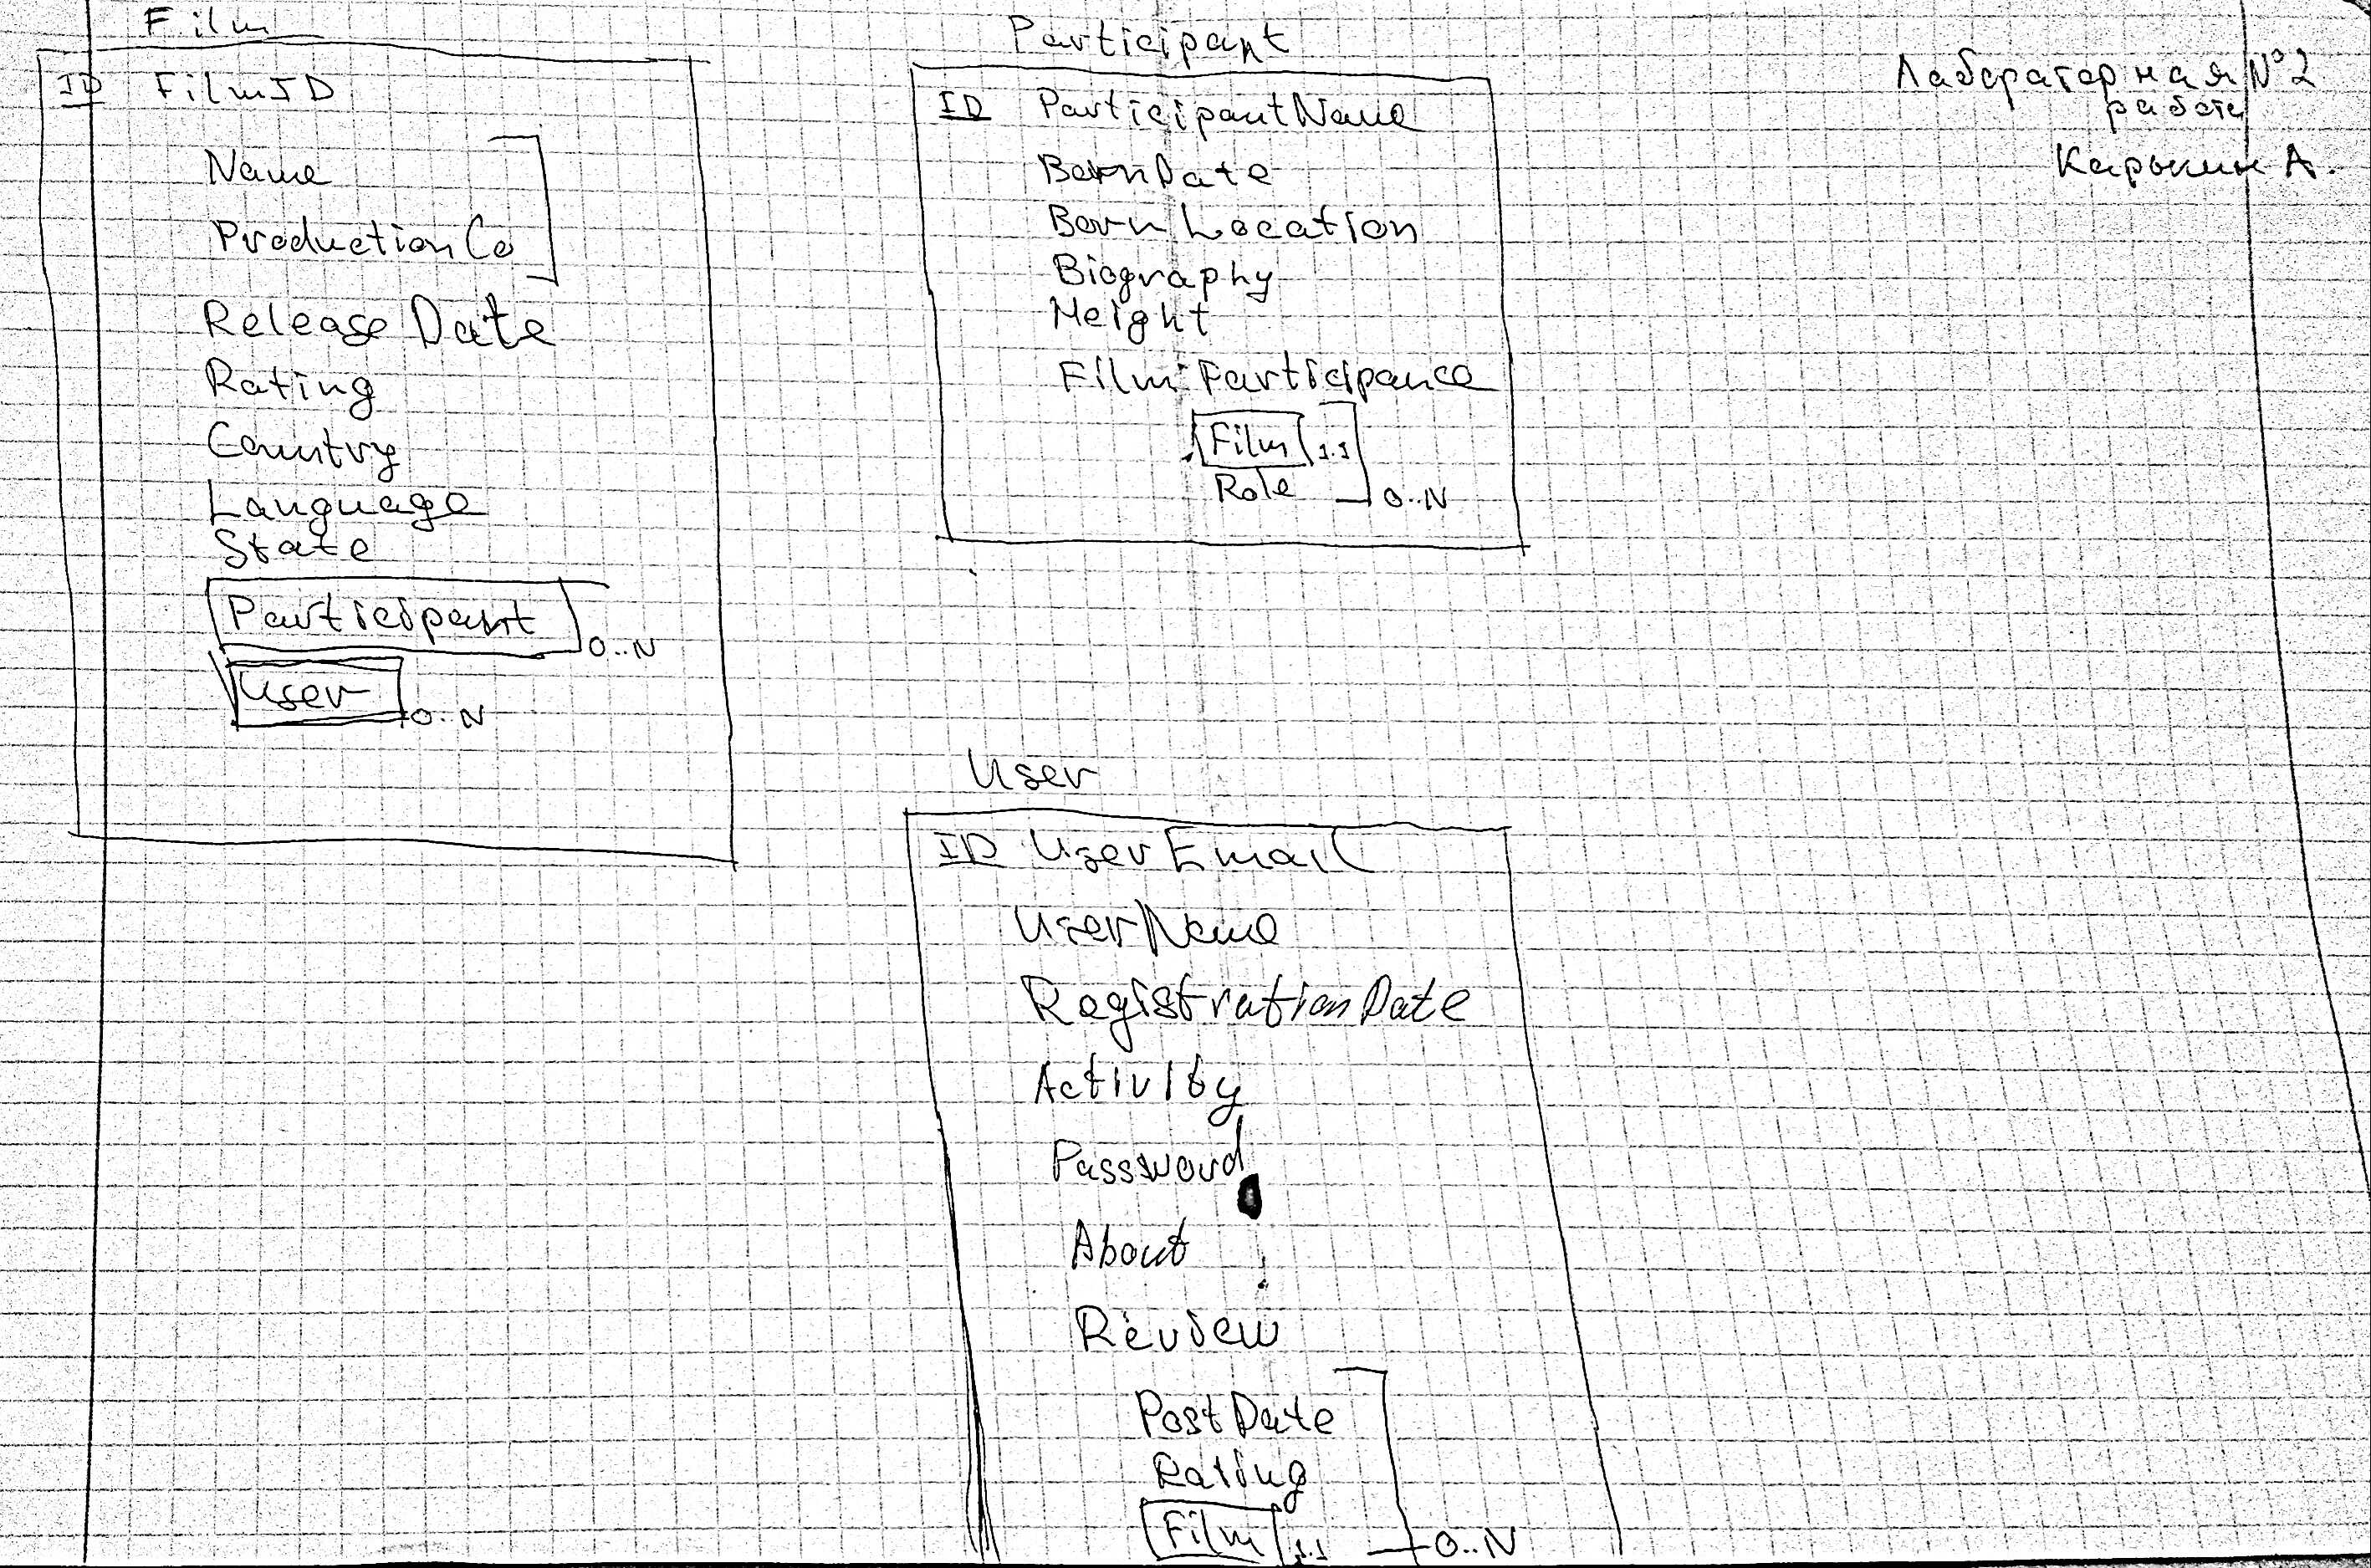 Film
ID FilmID
Name
ProductionCo
Release Date
Rating
Country
Language
State
Participant 0..N
User 0..N
Participant
ID ParticipantName
BornDate
Born Location
Biography
Height
Film Participance
Film 1.1
Role 0..N
Лабораторная №2
работа
Карькин А.
User
ID UserEmail
UserName
RegistrationDate
Activity
Password
About
Review
PostDate
Rating
Film 1.1 0..N